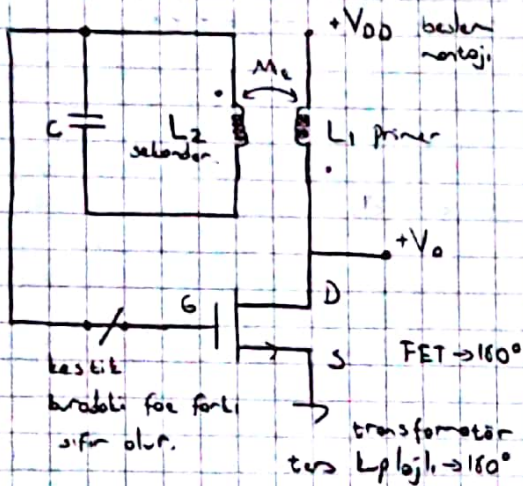 +VDD besleme
montajı
Me
C
L2
sekonder
L1 primer
+Vo
G
D
S
FET → 180°
kestik
buradaki faz farkı
sıfır olur.
transformatör
ters kplajlı → 180°